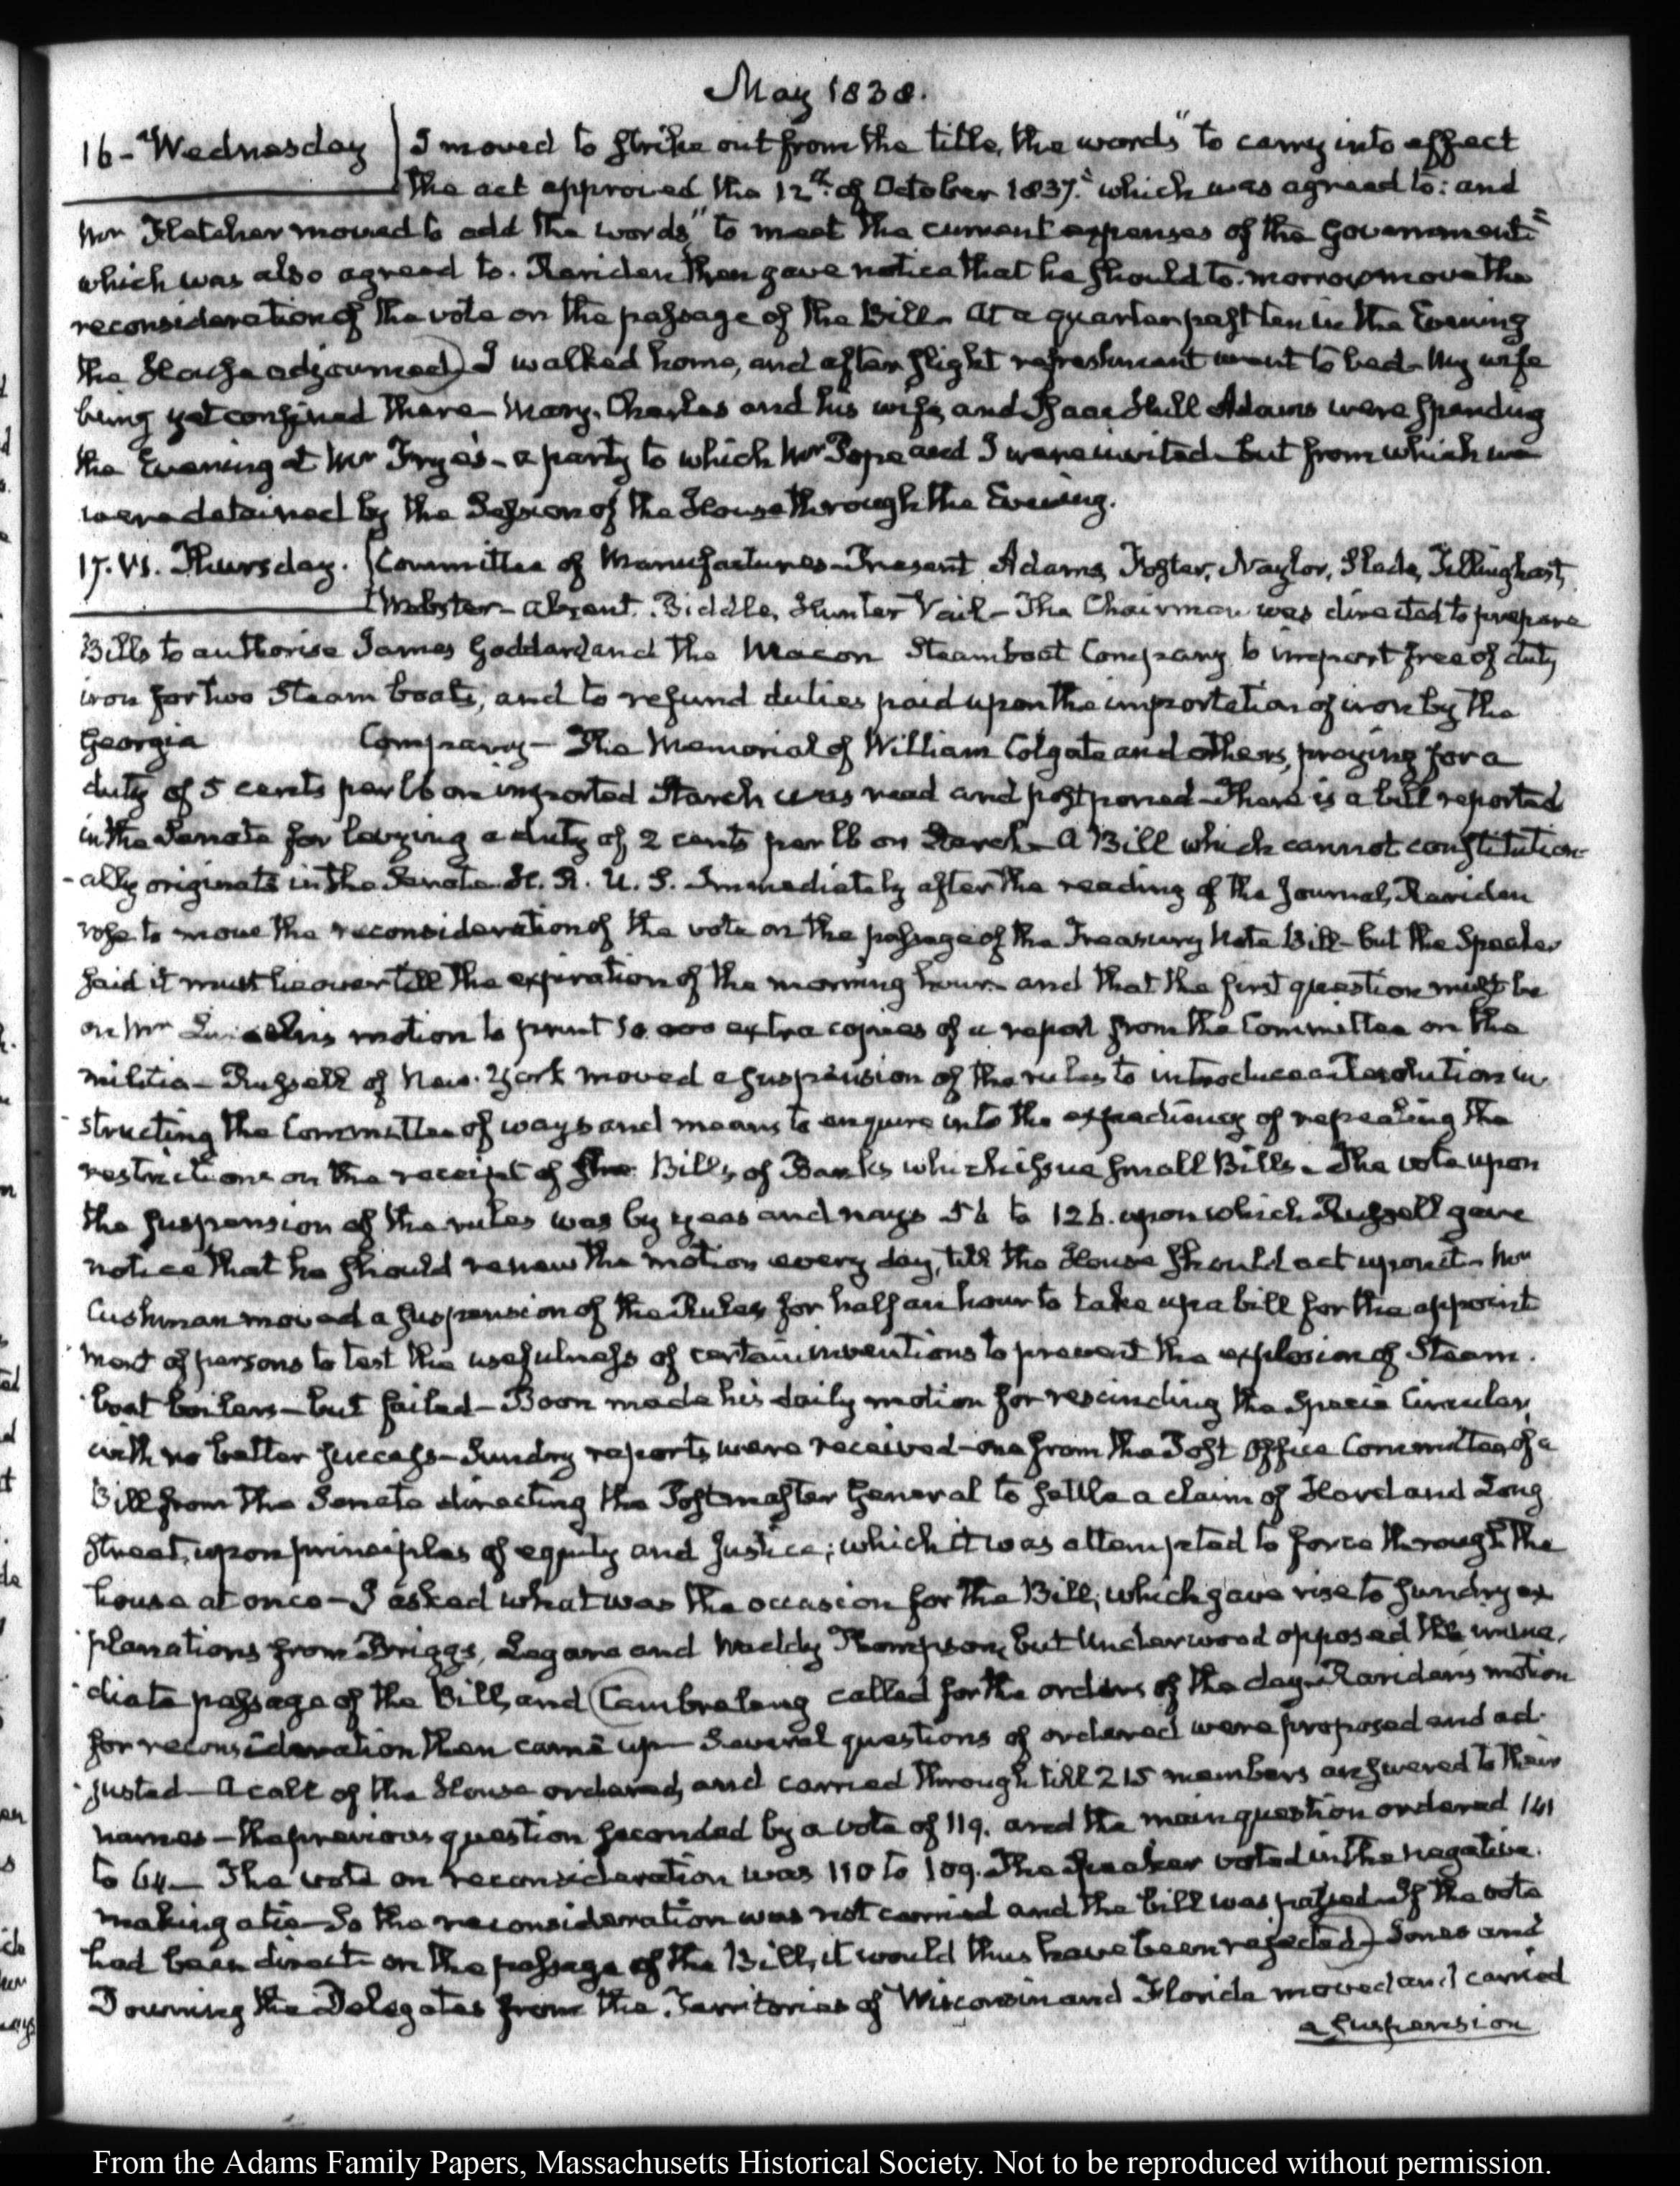 May 1838.
16 - Wednesday I moved to strike out from the title, the words "to carry into effect
the act approved the 12th of October 1837." which was agreed to: and
Mr Fletcher moved to add the words, "to meet the current expenses of the Government"
which was also agreed to. Rariden then gave notice that he should to-morrow move the
reconsideration of the vote on the passage of the Bill. At a quarter past ten in the Evening
the House adjourned) I walked home, and after slight refreshment went to bed - My wife
being yet confined there - Mary, Charles and his wife, and Isaac Hull Adams were spending
the Evening at Mr Frye's - a party to which Mr Pope and I were invited - but from which we
were detained by the Session of the House through the Evening.
17. VI. Thursday. Committee of Manufactures - Present Adams, Foster, Naylor, Slade, Tillinghast,
Webster - absent. Biddle, Hunter Vail - The Chairman was directed to prepare
Bills to authorise James Goddard and the Macon Steamboat Company to import free of duty
iron for two Steam boats, and to refund duties paid upon the importation of iron by the
Georgia Company - The Memorial of William Colgate and others, praying for a
duty of 5 cents per lb on imported Starch was read and postponed - There is a bill reported
in the Senate for levying a duty of 2 cents per lb on Starch - A Bill which cannot constitution-
-ally originate in the Senate. H. R. U. S. Immediately after the reading of the Journal, Rariden
rose to move the reconsideration of the vote on the passage of the Treasury Note Bill - but the Speaker
said it must lie over till the expiration of the morning hour - and that the first question must be
on Mr motion to print extra copies of a report from the Committee on the
militia - Russell of New-York moved a suspension of the rules to introduce a Resolution in-
-structing the Committee of ways and means to enquire into the expediency of repealing the
restrictions on the receipt of the Bills of Banks which issue small Bills - The vote upon
the suspension of the rules was by yeas and nays 56 to 126. upon which Russell gave
notice that he should renew the motion every day, till the House should act upon it - Mr
Cushman moved a suspension of the Rules for half an hour to take up a bill for the appoint
ment of persons to test the usefulness of certain inventions to prevent the explosion of Steam-
boat boilers - but failed - Boon made his daily motion for rescinding the Specie Circular,
with no better success - Sundry reports were received - one from the Post Office Committee, of a
Bill from the Senate directing the Postmaster General to settle a claim of and Long
street, upon principles of equity and Justice; which it was attempted to force through the
house at once - I asked what was the occasion for the Bill; which gave rise to sundry ex
planations from Briggs, Legare and Waddy Thompson, but Underwood opposed the imme-
diate passage of the Bill, and (Cambreleng called for the orders of the day - Rariden's motion
for reconsideration then came up - Several questions of ordered were proposed and ad-
justed - A call of the House ordered, and carried through till 215 members answered to their
names - the previous question seconded by a vote of 119. and the main question ordered 141
to 64 - The vote on reconsideration was 110 to 109. The Speaker voted in the negative.
making a tie - So the reconsideration was not carried and the bill was passed - If the vote
had been direct on the passage of the Bill, it would thus have been rejected) - Jones and
Downing the Delegates from the Territories of Wisconsin and Florida moved and carried
a suspension
From the Adams Family Papers, Massachusetts Historical Society. Not to be reproduced without permission.